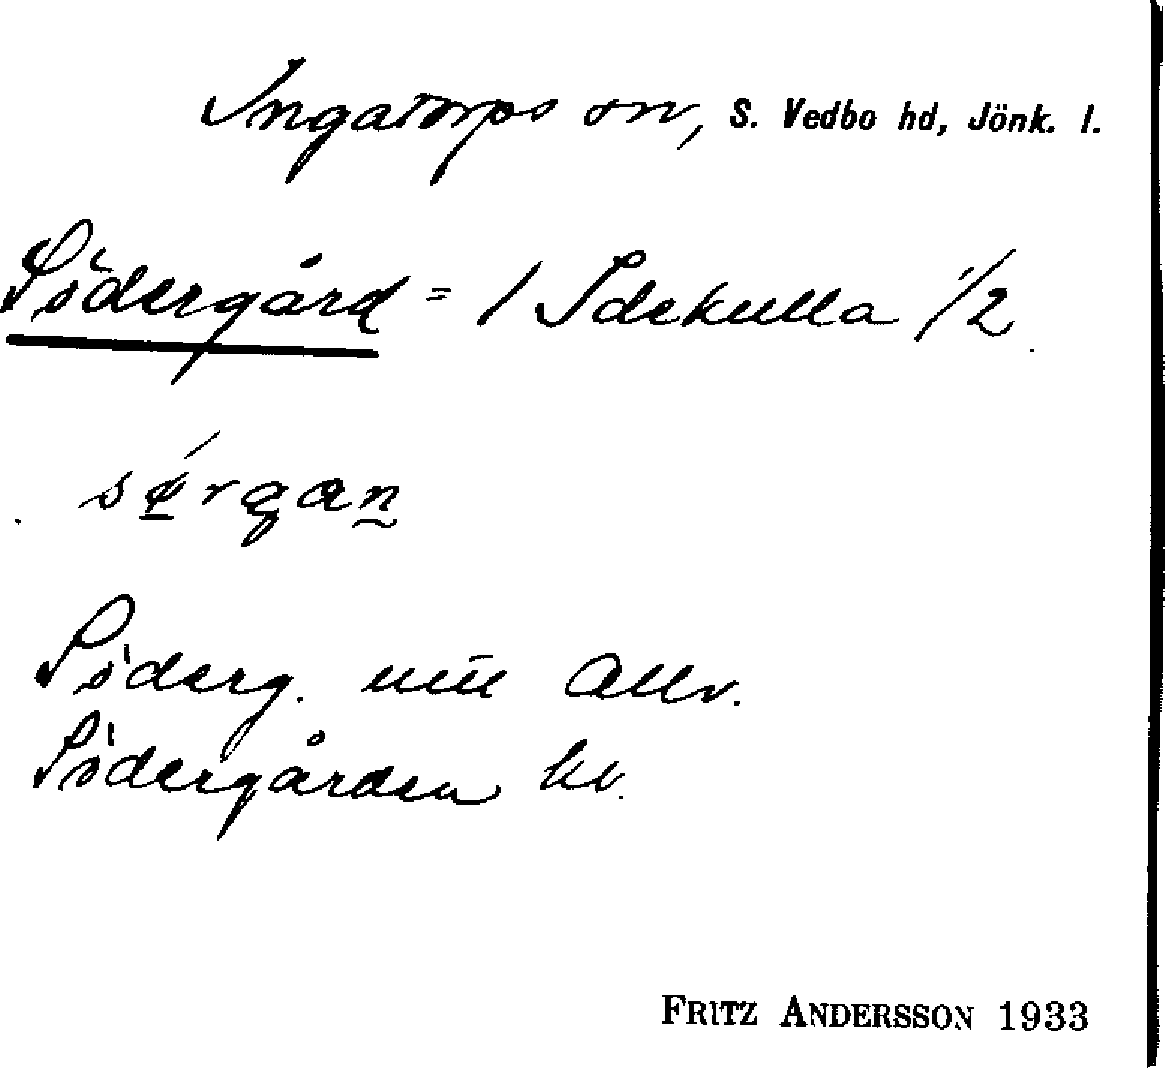 Ingatorps sn, S. Vedbo hd, Jönk. l.
Södergård = / Idekulla 1/2
sǿ̱rgan̰
Söderg. uttt Allv.
Södergården kl.
FRITZ ANDERSSON 1933